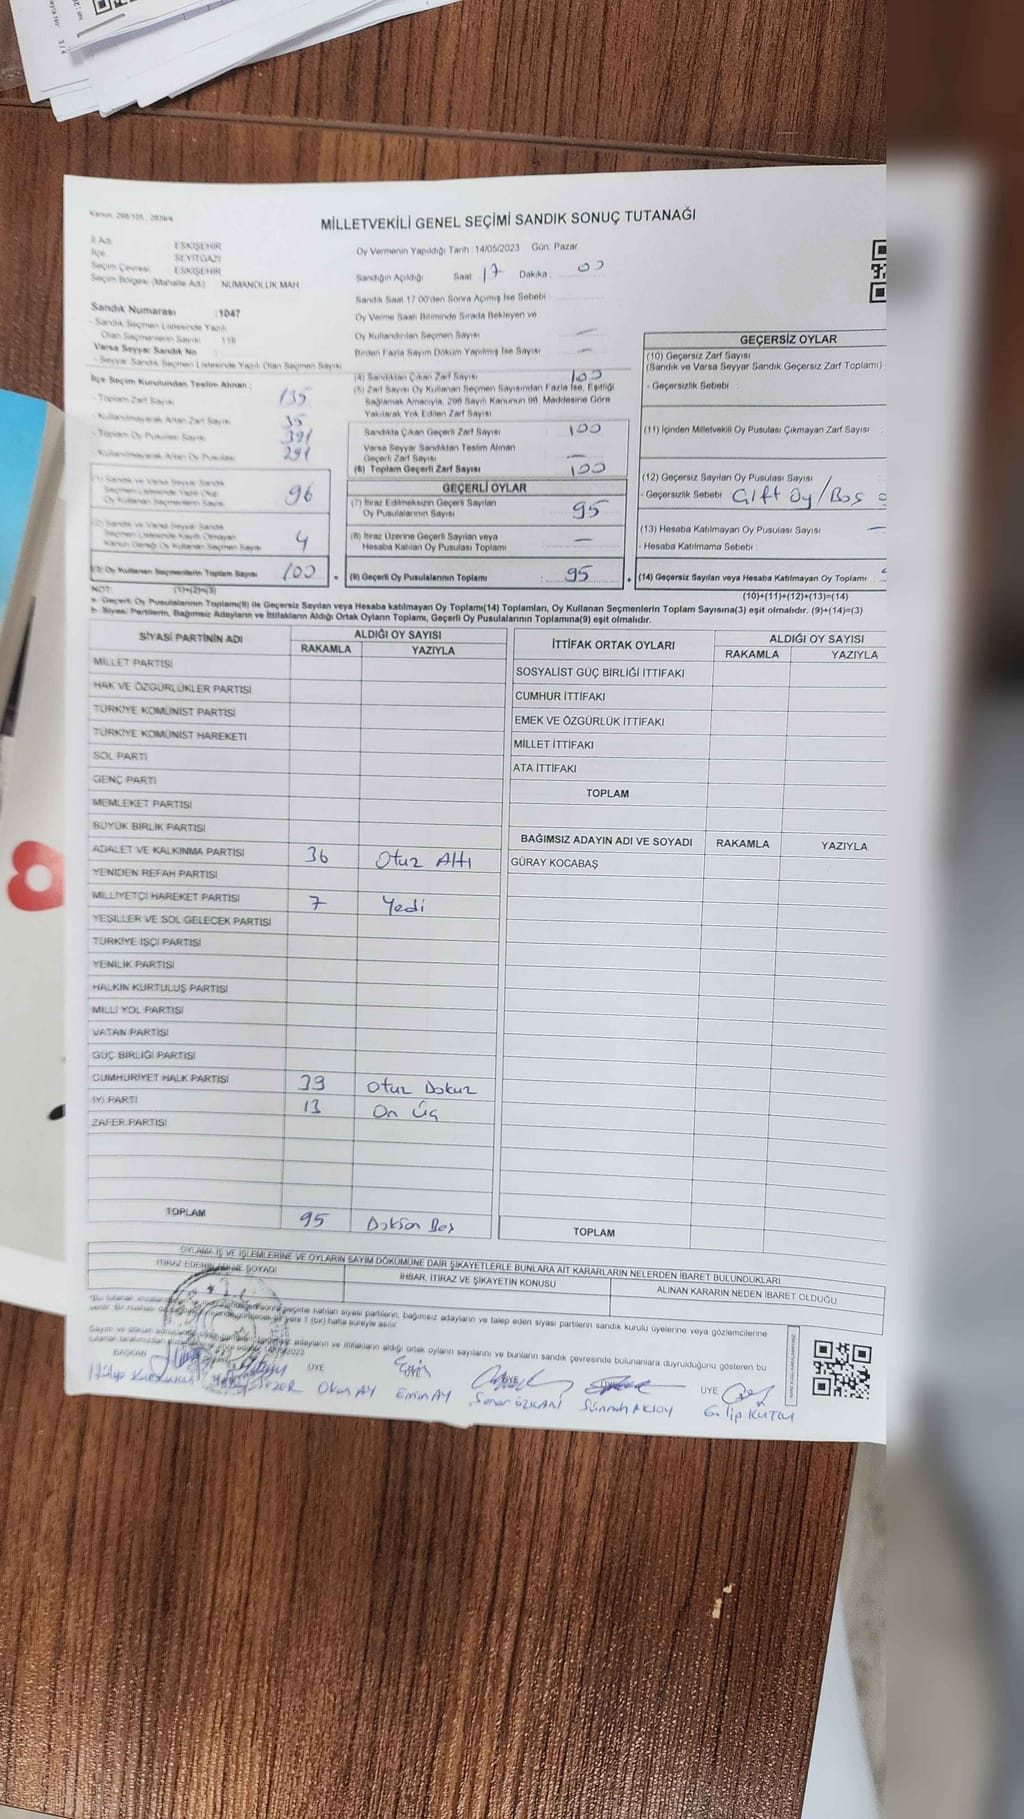 Kanun: 298/105 , 2839/4
MİLLETVEKİLİ GENEL SEÇİMİ SANDIK SONUÇ TUTANAĞI
İl Adı : ESKİŞEHİR
İlçe : SEYİTGAZİ
Seçim Çevresi : ESKİŞEHİR
Seçim Bölgesi (Mahalle Adı) NUMANOLUK MAH.
Sandık Numarası : 1047
- Sandık Seçmen Listesinde Yazılı
Olan Seçmenlerin Sayısı : 118
Varsa Seyyar Sandık No :
- Seyyar Sandık Seçmen Listesinde Yazılı Olan Seçmen Sayısı
İlçe Seçim Kurulundan Teslim Alınan :
- Toplam Zarf Sayısı 135
- Kullanılmayarak Artan Zarf Sayısı 35
- Toplam Oy Pusulası Sayısı 391
- Kullanılmayarak Artan Oy Pusulası 291
(1) Sandık ve Varsa Seyyar Sandık
Seçmen Listesinde Yazılı Olup
Oy Kullanan Seçmenlerin Sayısı 96
(2) Sandık ve Varsa Seyyar Sandık
Seçmen Listesinde Kayıtlı Olmayan
Kanun Gereği Oy Kullanan Seçmen Sayısı 4
(3) Oy Kullanan Seçmenlerin Toplam Sayısı 100
(1)+(2)=(3)
Oy Vermenin Yapıldığı Tarih : 14/05/2023 Gün: Pazar
Sandığın Açıldığı Saat: 17 Dakika : 00
Sandık Saat 17.00'den Sonra Açılmış İse Sebebi :
Oy Verme Saati Bitiminde Sırada Bekleyen ve
Oy Kullandırılan Seçmen Sayısı : —
Birden Fazla Sayım Döküm Yapılmış İse Sayısı : —
(4) Sandıktan Çıkan Zarf Sayısı 100
(5) Zarf Sayısı Oy Kullanan Seçmen Sayısından Fazla İse, Eşitliği
Sağlamak Amacıyla, 298 Sayılı Kanunun 98. Maddesine Göre
Yakılarak Yok Edilen Zarf Sayısı
Sandıkta Çıkan Geçerli Zarf Sayısı : 100
Varsa Seyyar Sandıktan Teslim Alınan
Geçerli Zarf Sayısı : —
(6) Toplam Geçerli Zarf Sayısı : 100
GEÇERLİ OYLAR
(7) İtiraz Edilmeksizin Geçerli Sayılan
Oy Pusulalarının Sayısı : 95
(8) İtiraz Üzerine Geçerli Sayılan veya
Hesaba Katılan Oy Pusulası Toplamı : —
= (9) Geçerli Oy Pusulalarının Toplamı : 95 +
GEÇERSİZ OYLAR
(10) Geçersiz Zarf Sayısı
(Sandık ve Varsa Seyyar Sandık Geçersiz Zarf Toplamı) :
- Geçersizlik Sebebi :
(11) İçinden Milletvekili Oy Pusulası Çıkmayan Zarf Sayısı :
(12) Geçersiz Sayılan Oy Pusulası Sayısı :
- Geçersizlik Sebebi : Çift Oy / Boş
(13) Hesaba Katılmayan Oy Pusulası Sayısı : —
- Hesaba Katılmama Sebebi :
(14) Geçersiz Sayılan veya Hesaba Katılmayan Oy Toplamı :
(10)+(11)+(12)+(13)=(14)
NOT:
a- Geçerli Oy Pusulalarının Toplamı(9) ile Geçersiz Sayılan veya Hesaba katılmayan Oy Toplamı(14) Toplamları, Oy Kullanan Seçmenlerin Toplam Sayısına(3) eşit olmalıdır. (9)+(14)=(3)
b- Siyasi Partilerin, Bağımsız Adayların ve İttifakların Aldığı Ortak Oyların Toplamı, Geçerli Oy Pusulalarının Toplamına(9) eşit olmalıdır.
SİYASİ PARTİNİN ADI ALDIĞI OY SAYISI
RAKAMLA YAZIYLA
MİLLET PARTİSİ
HAK VE ÖZGÜRLÜKLER PARTİSİ
TÜRKİYE KOMÜNİST PARTİSİ
TÜRKİYE KOMÜNİST HAREKETİ
SOL PARTİ
GENÇ PARTİ
MEMLEKET PARTİSİ
BÜYÜK BİRLİK PARTİSİ
ADALET VE KALKINMA PARTİSİ 36 Otuz Altı
YENİDEN REFAH PARTİSİ
MİLLİYETÇİ HAREKET PARTİSİ 7 Yedi
YEŞİLLER VE SOL GELECEK PARTİSİ
TÜRKİYE İŞÇİ PARTİSİ
YENİLİK PARTİSİ
HALKIN KURTULUŞ PARTİSİ
MİLLİ YOL PARTİSİ
VATAN PARTİSİ
GÜÇ BİRLİĞİ PARTİSİ
CUMHURİYET HALK PARTİSİ 39 Otuz Dokuz
İYİ PARTİ 13 On Üç
ZAFER PARTİSİ
TOPLAM 95 Doksan Beş
İTTİFAK ORTAK OYLARI ALDIĞI OY SAYISI
RAKAMLA YAZIYLA
SOSYALİST GÜÇ BİRLİĞİ İTTİFAKI
CUMHUR İTTİFAKI
EMEK VE ÖZGÜRLÜK İTTİFAKI
MİLLET İTTİFAKI
ATA İTTİFAKI
TOPLAM
BAĞIMSIZ ADAYIN ADI VE SOYADI RAKAMLA YAZIYLA
GÜRAY KOCABAŞ
TOPLAM
OYLAMA İŞ VE İŞLEMLERİNE VE OYLARIN SAYIM DÖKÜMÜNE DAİR ŞİKAYETLERLE BUNLARA AİT KARARLARIN NELERDEN İBARET BULUNDUKLARI
İTİRAZ EDENİN ADI VE SOYADI İHBAR, İTİRAZ VE ŞİKAYETİN KONUSU ALINAN KARARIN NEDEN İBARET OLDUĞU
sonra seçime katılan siyasi partilerin, bağımsız adayların ve talep eden siyasi partilerin sandık kurulu üyelerine veya gözlemcilerine
verilir. Bir nüshası da yere 1 (bir) hafta süreyle asılır.
adayların ve ittifakların aldığı ortak oyların sayılarını ve bunların sandık çevresinde bulunanlara duyrulduğunu gösteren bu
BAŞKAN ÜYE ÜYE ÜYE ÜYE
Okan AY Emin AY Soner ÖZKANI AKSOY Galip KUTLU